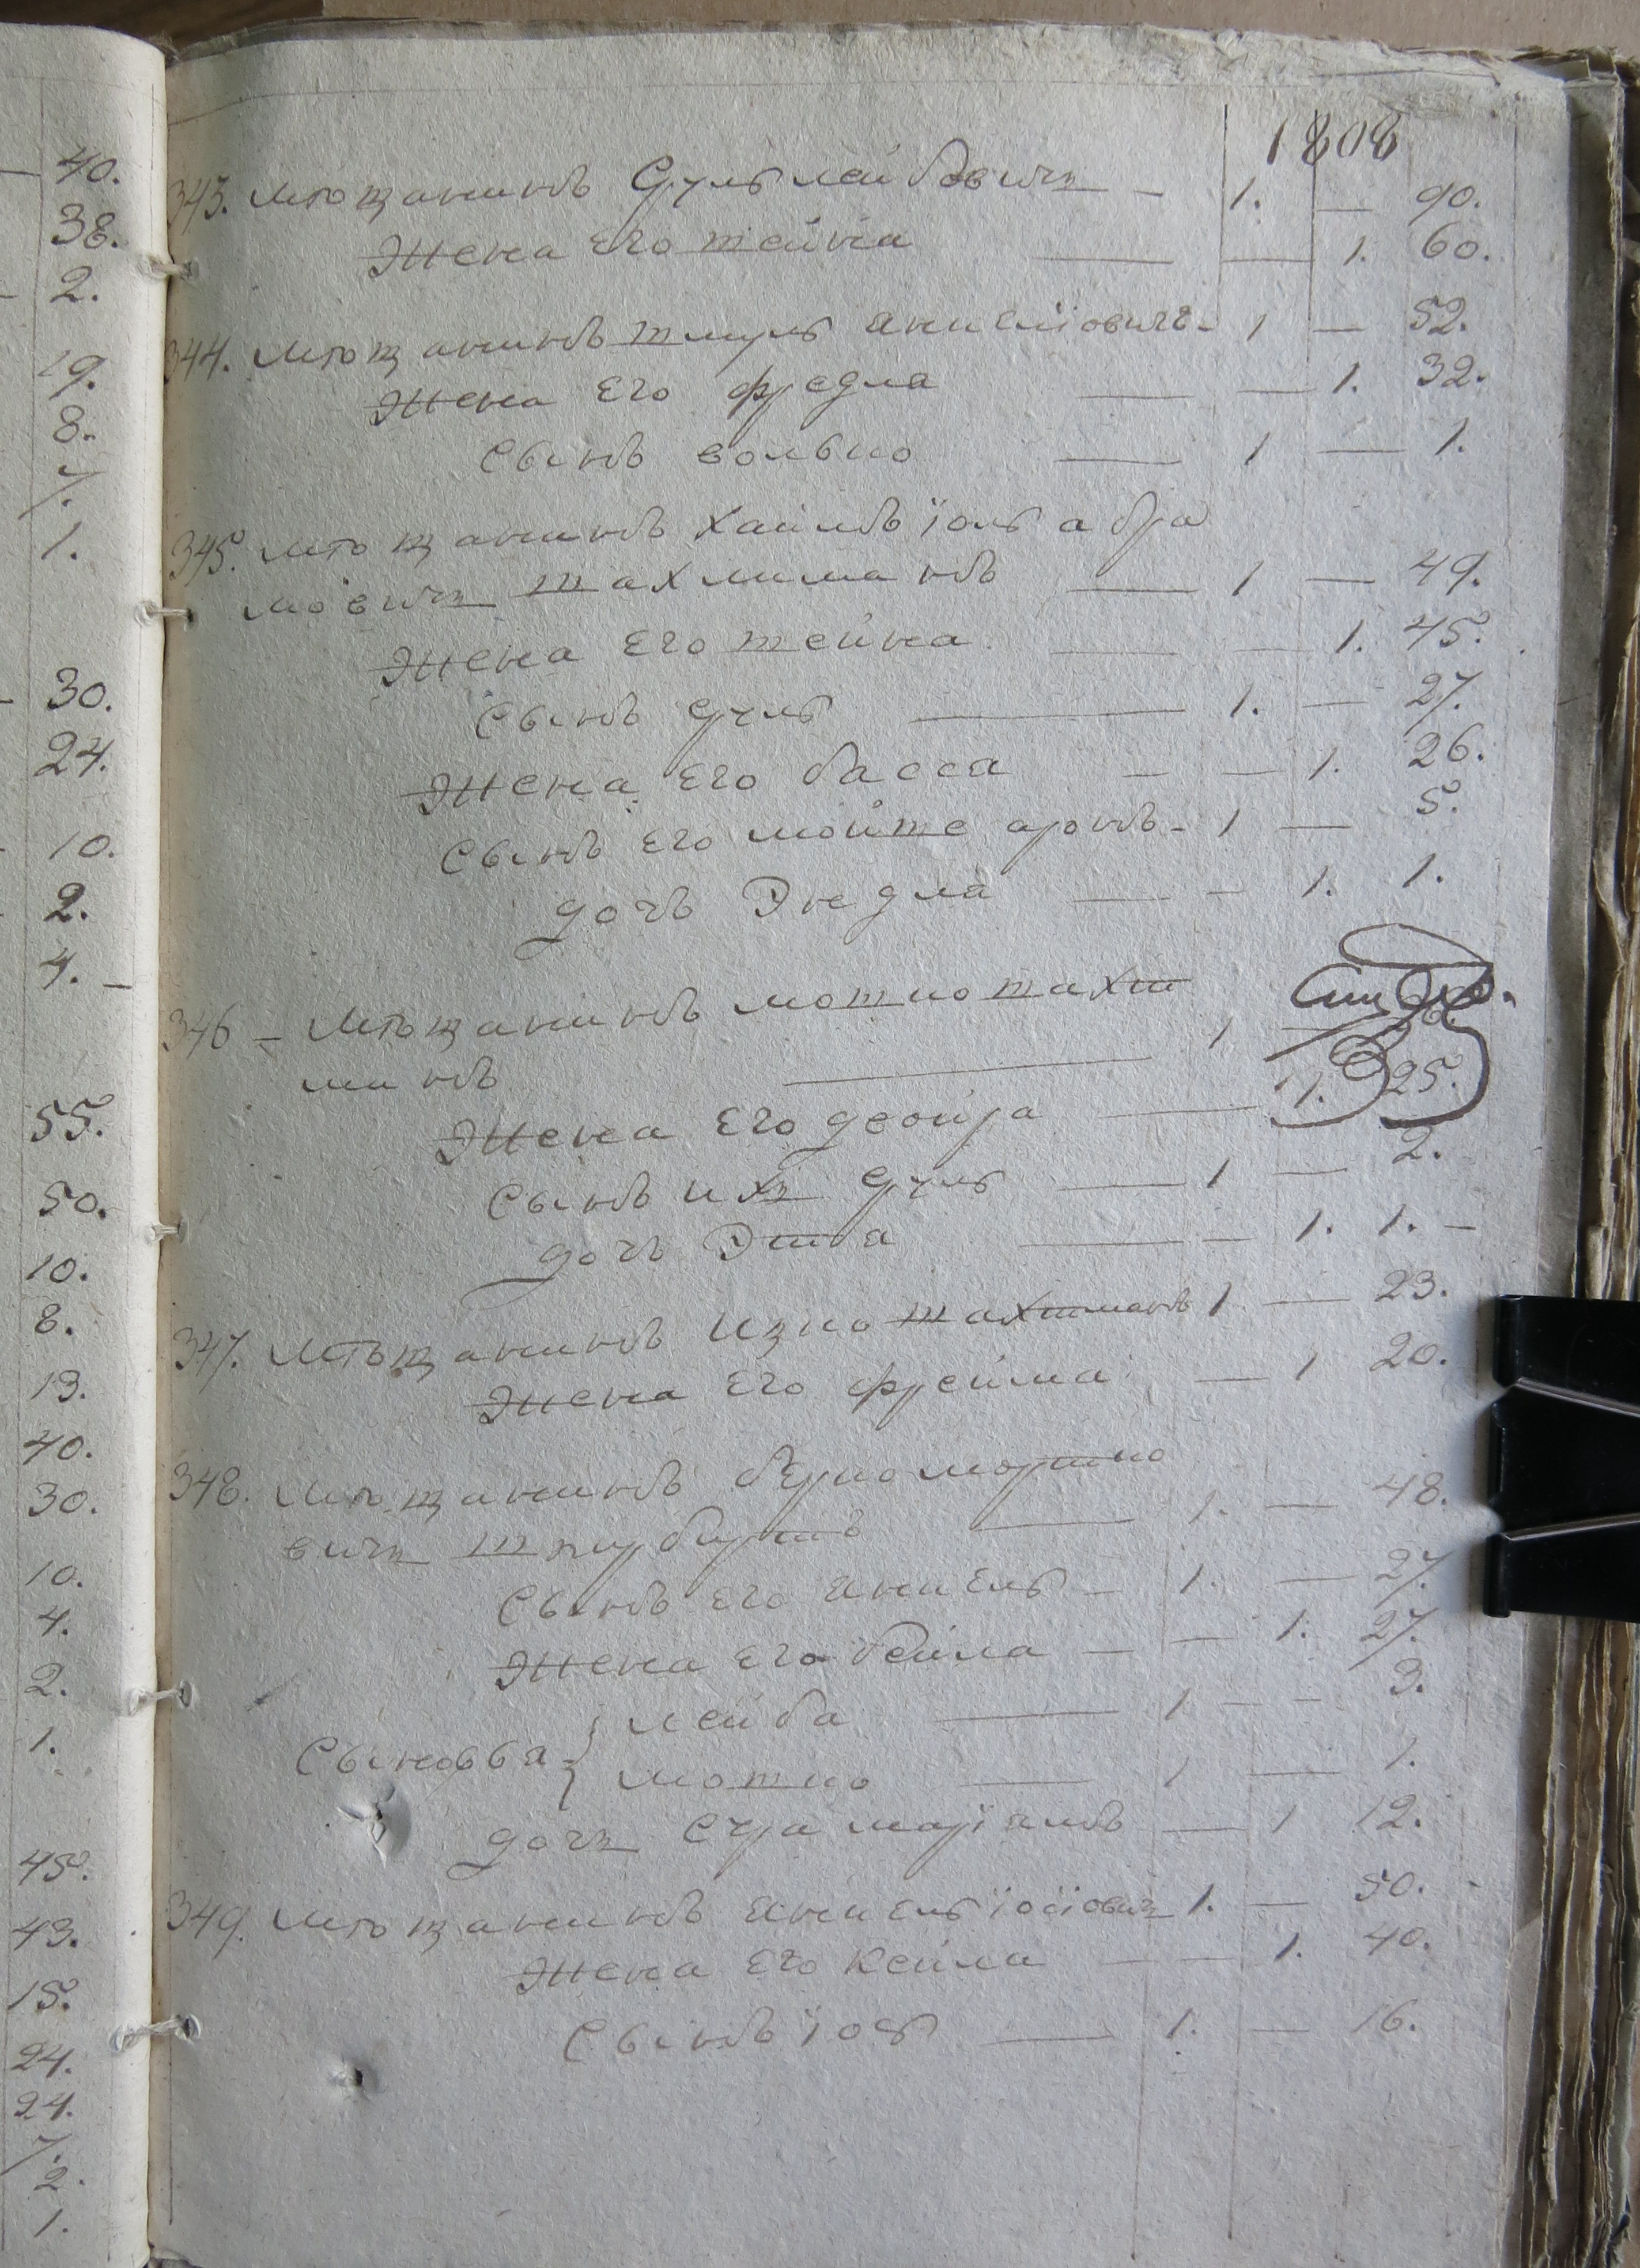 1808
40.
38.
2.
19.
8.
7.
1.
30.
24.
10.
2.
4. –
55.
50.
10.
8.
13.
40.
30.
10.
4.
2.
1.
45.
43.
15.
24.
24.
7.
2.
1.
343. Мѣщанинъ Сруль лейбовичъ – 1. — 90.
Жена Его шейна — — 1. 60.
344. Мѣщанинъ шмуль анкелiовичъ – 1 — 52.
Жена Его фредла — — 1. 32.
Сынъ волько — 1 — 1.
345. мѣщанинъ Хаимъ їоль абра
мовичъ шахманъ — 1 — 49.
Жена Его шейна — — 1. 45.
Сынъ Сруль — 1. — 27.
Жена Его басся — — 1. 26.
Сынъ Его мойше аронъ – 1 — 5.
дочь Энедля — – 1. 1.
346 – Мѣщанинъ мошко шахт
манъ — 1
Жена Его двойра — 1. 25.
Сынъ ихъ Сруль — 1 — 2.
дочь Этта — – 1. 1. –
347. Мѣщанинъ Ицко шахтманъ 1 — 23.
Жена Его фрейма — 1 20.
348. Мѣщанинъ берко мортко
вичъ 1. — 48.
Сынъ Его анкель – 1. — 27.
Жена Его бейла — – 1. 27.
Сыновья { лейба — 1 – – 3.
мошко — 1 — 1.
дочь Сура марїямъ — 1 12.
349. Мѣщанинъ анкель їосїовичъ 1. — 50.
Жена Его Кейла — — 1. 40.
Сынъ їось — 1. — 16.